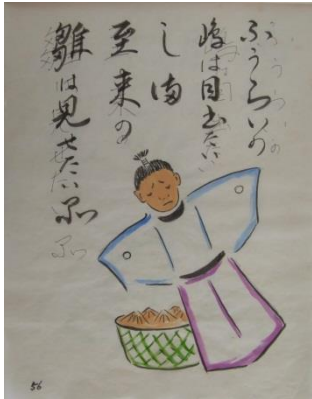 ふうらいの
は目出たい
し
至来の
雛は見せたい
56